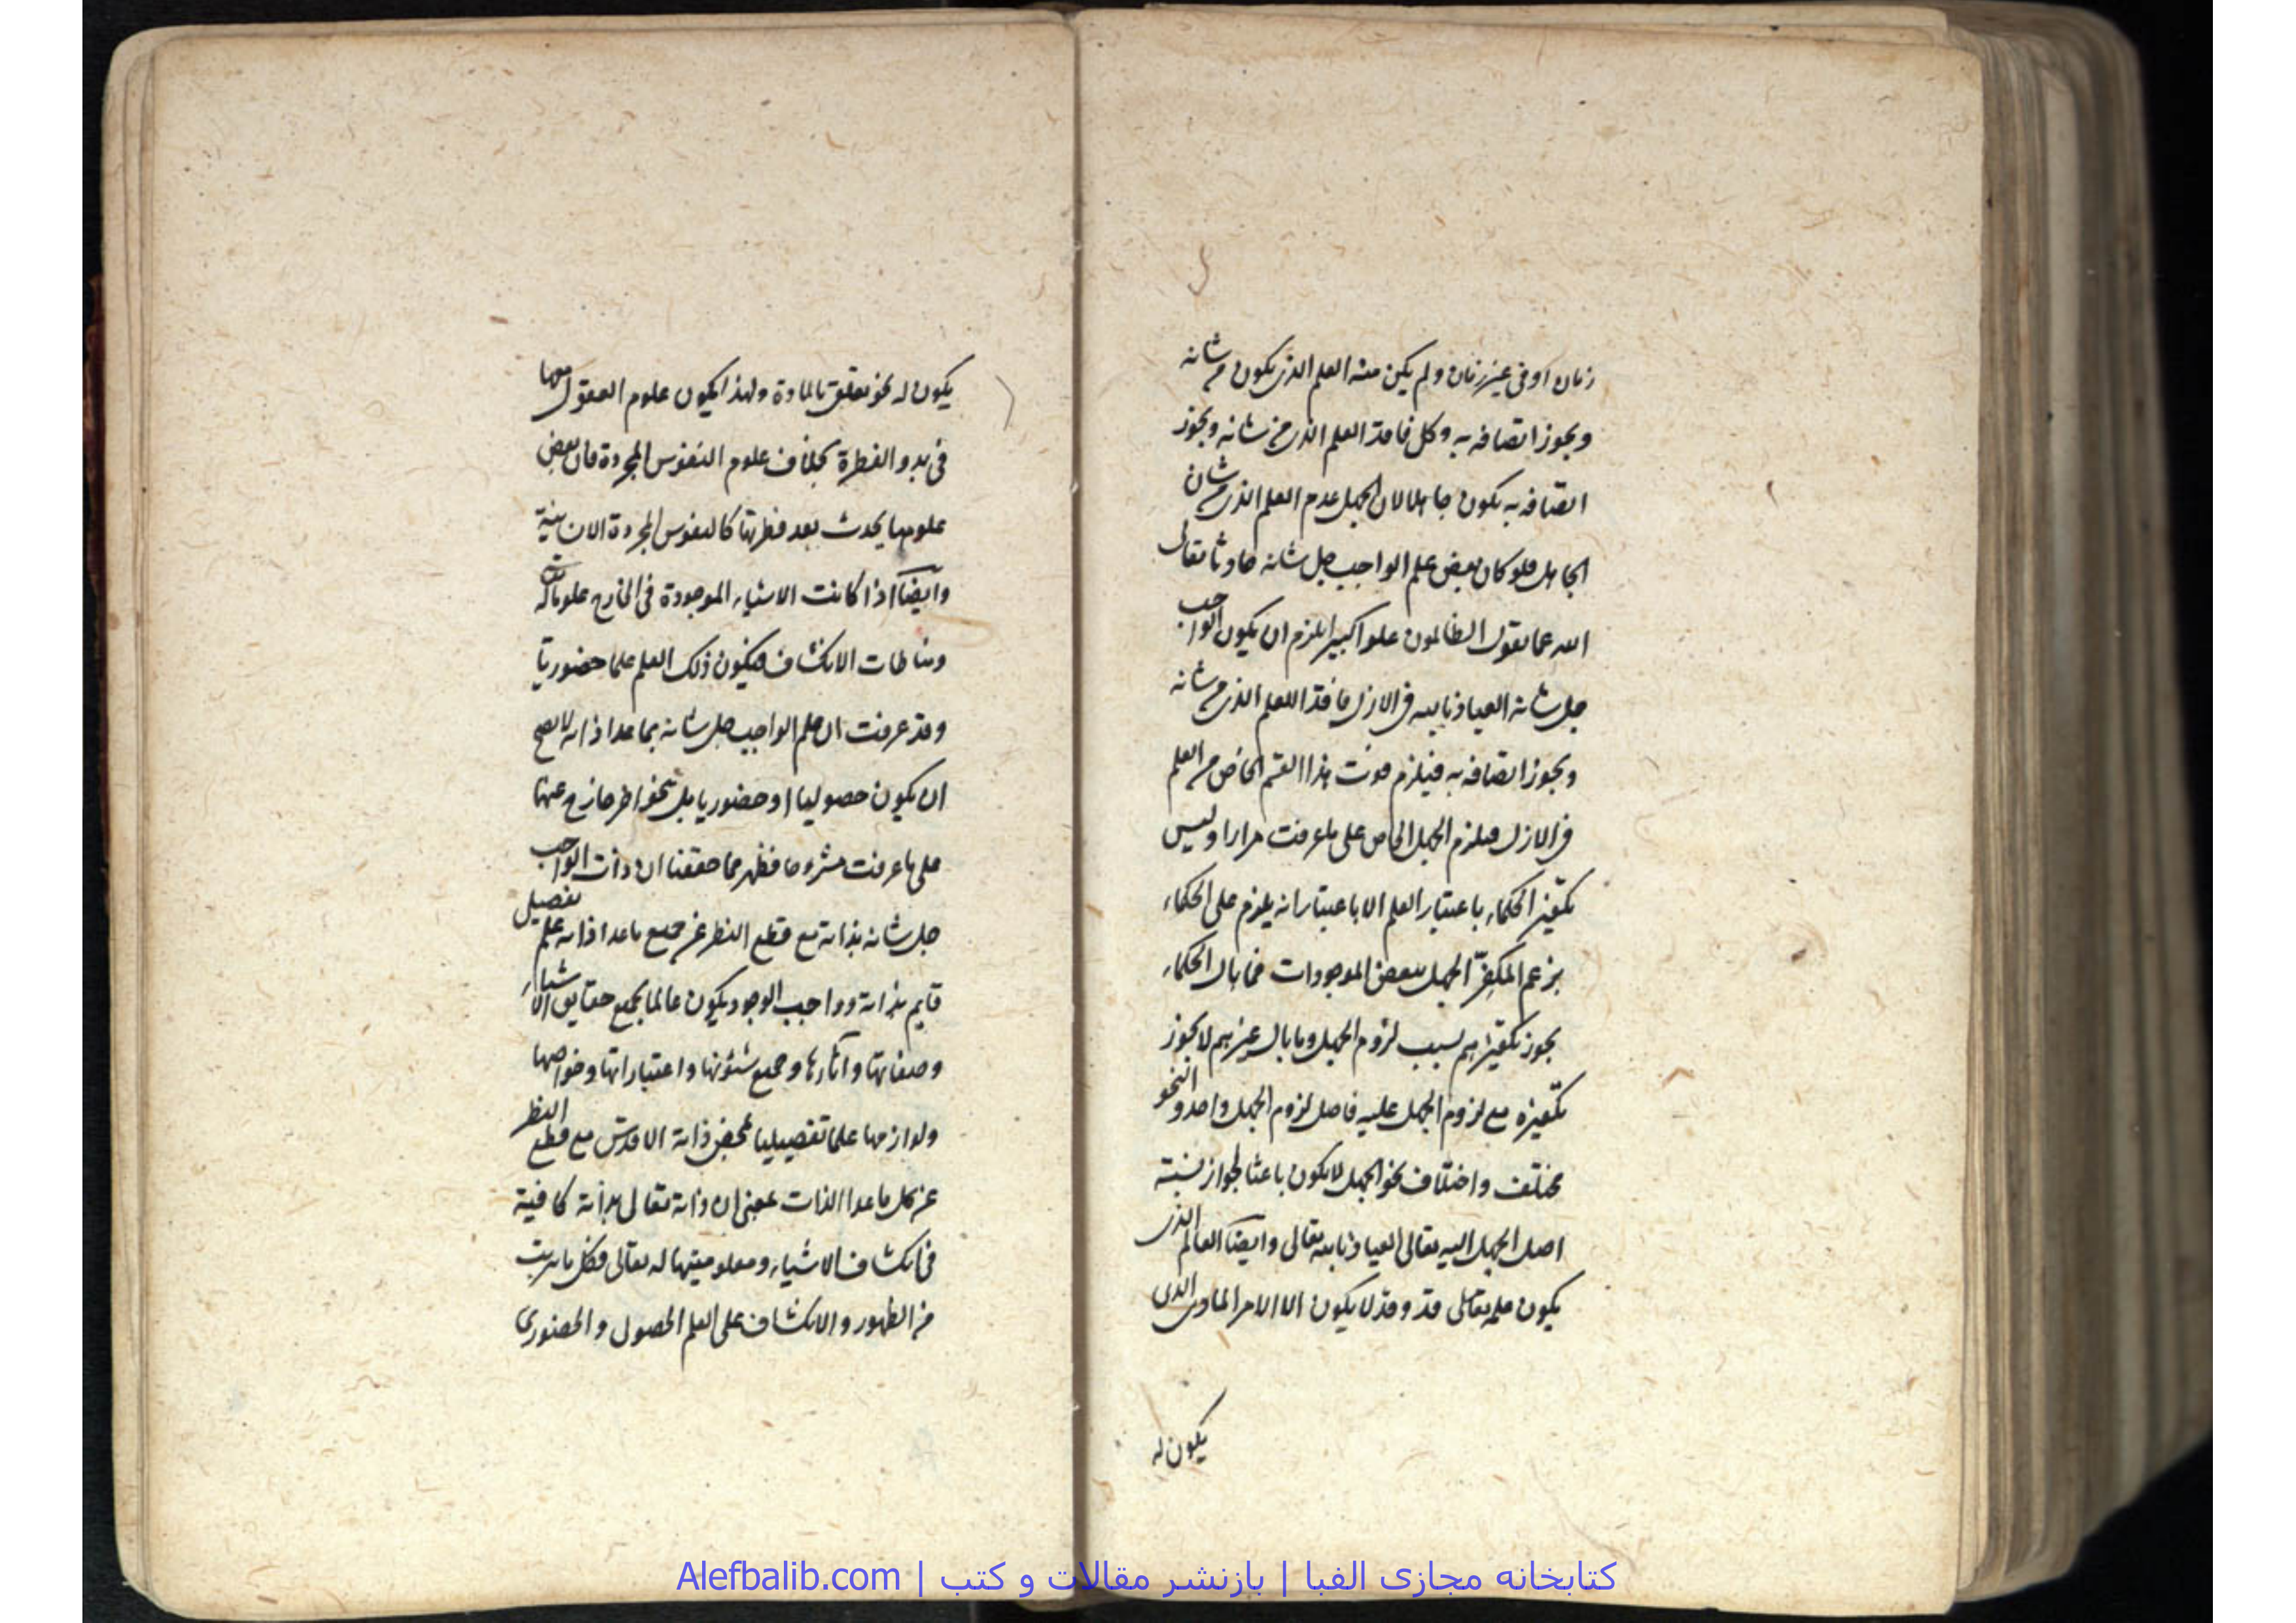 زمان او فی غیر زمان ولم یکن منه العلم الذی یکون من شانه
ویجوز اتصافه به وکل فاقد العلم الذی من شانه ویجوز
اتصافه به یکون جاهلا لان الجهل عدم العلم الذی من شان
الجاهل فلو کان بعض علم الواجب جل شانه حادثا تعالی
الله عما یقول الظالمون علوا کبیرا یلزم ان یکون الواجب
جل شانه العیاذ بالله فی الازل فاقد العلم الذی من شانه
ویجوز اتصافه به فیلزم فوت هذا القسم الخاص من العلم
فی الازل فیلزم الجهل الخاص علی ما عرفت مرارا ولیس
تکفیر الحکماء باعتبار العلم الا باعتبار انه یلزم علی الحکماء
بزعم المکفر الجهل ببعض الموجودات فما بال الحکماء
یجوز تکفیرهم بسبب لزوم الجهل وما بال غیرهم لا یجوز
تکفیره مع لزوم الجهل علیه فاصل لزوم الجهل واحد والنحو
مختلف واختلاف نحو الجهل لا یکون باعثا لجواز نسبة
اصل الجهل الیه تعالی العیاذ بالله تعالی وایضا العالم الذی
یکون علمه تعالی قد وقد لا یکون الا الامر المادی الذی
یکون له
یکون له نحو تعلق بالمادة ولهذا یکون علوم العقول معها
فی بدو الفطرة بخلاف علوم النفوس المجردة فان بعض
علومها یحدث بعد فطرتها کالنفوس المجردة الانسانیة
وایضا اذا کانت الاشیاء الموجودة فی الخارج علوما له تعالی
ومناطات الانکشاف فیکون ذلک العلم علما حضوریا
وقد عرفت ان علم الواجب جل شانه بما عدا ذاته لا یصح
ان یکون حصولیا او حضوریا بل بنحو اخر خارج عنها
علی ما عرفت مشروحا فظهر مما حققنا ان ذات الواجب
جل شانه بذاته مع قطع النظر عن جمیع ما عدا ذاته علم تفصیلی
قایم بذاته وواجب الوجود یکون عالما بجمیع حقایق الاشیاء
وصفاتها وآثارها وجمیع شئونها واعتباراتها وخواصها
ولوازمها علما تفصیلیا بمحض ذاته الاقدس مع قطع النظر
عن کل ما عدا الذات بمعنی ان ذاته تعالی بذاته کافیة
فی انکشاف الاشیاء ومعلومیتها له تعالی فکل ما یترتب
من الظهور والانکشاف علی العلم الحصولی والحضوری
کتابخانه مجازی الفبا | بازنشر مقالات و کتب | Alefbalib.com